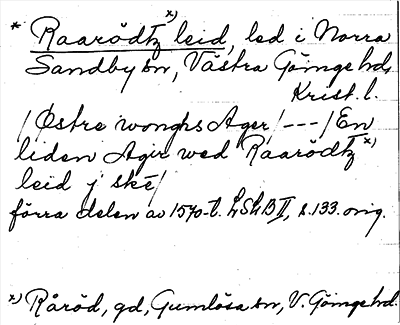 * Raarödtz x) leid, led i Norra
Sandby sn, Västra Göinge hd,
Krist. l.
/ Østre wonghs Ager / --- / En
liden Ager wed Raarödtz x)
leid j ske /
förra delen av 1570-t. LSkB II, s. 133. orig.
x) Råröd, gd, Gumlösa sn, V. Göinge hd.